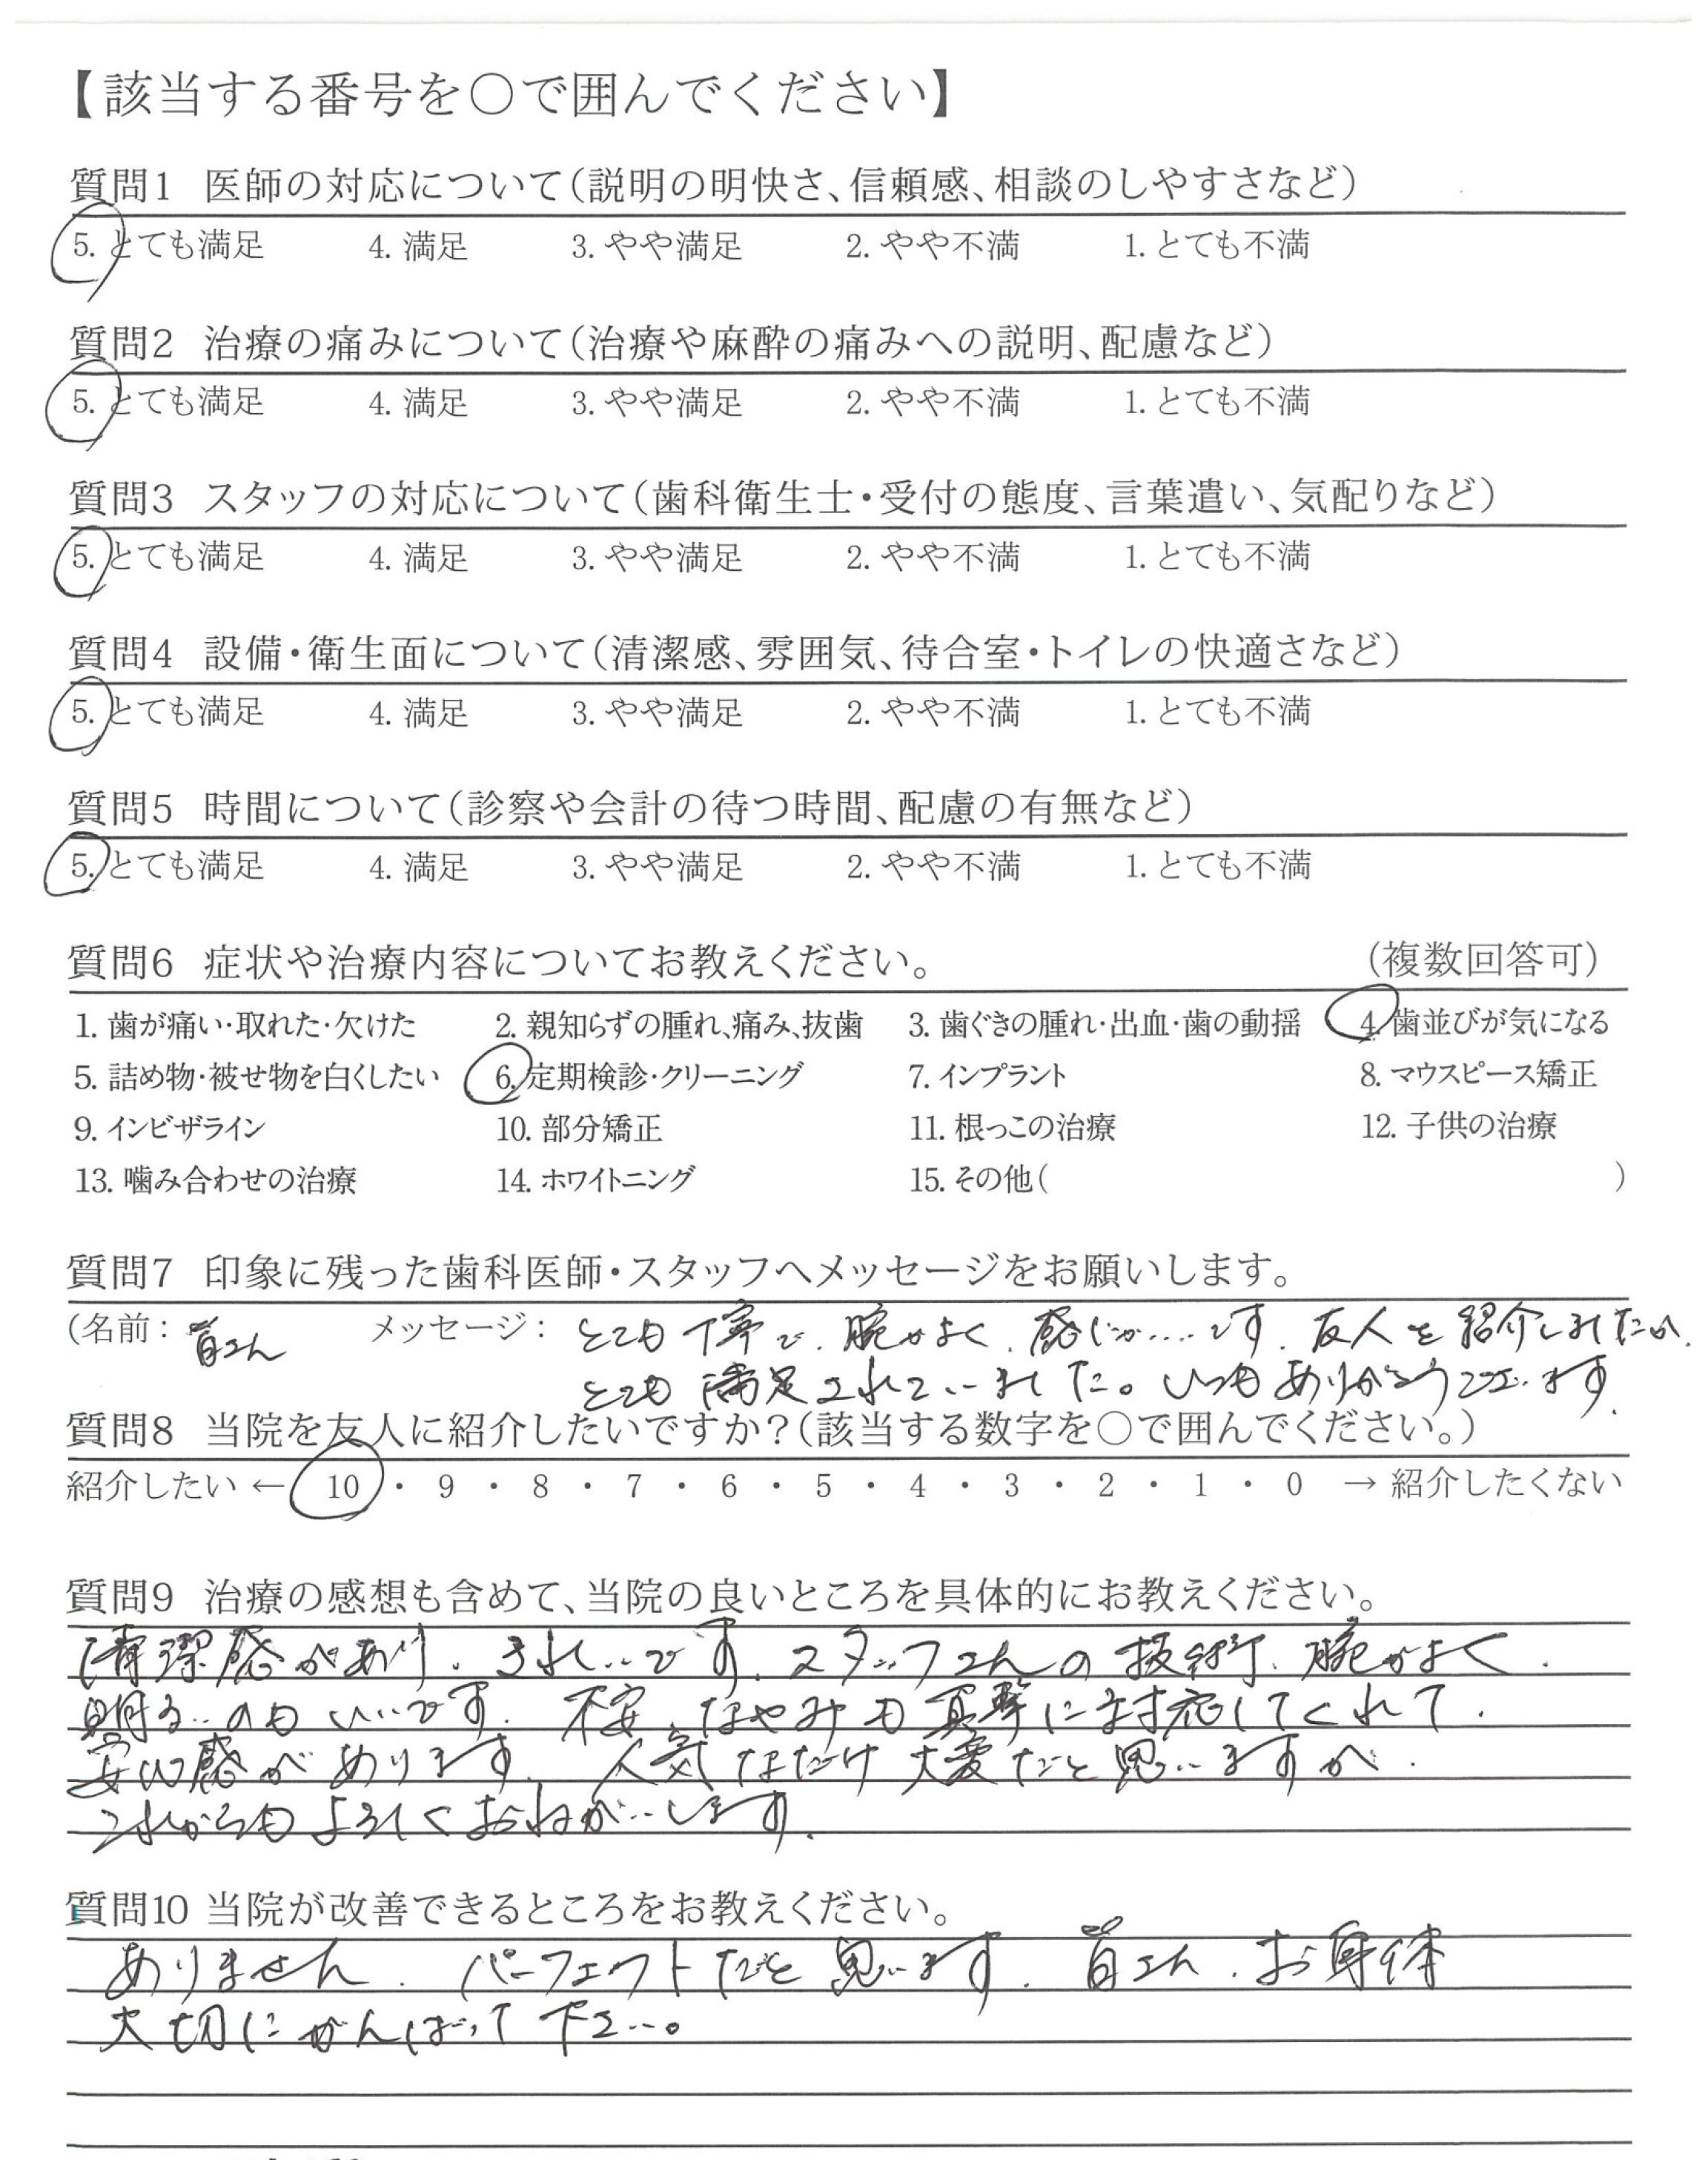 【該当する番号を○で囲んでください】
質問1 医師の対応について(説明の明快さ、信頼感、相談のしやすさなど)
5. とても満足 4. 満足 3. やや満足 2. やや不満 1. とても不満
質問2 治療の痛みについて(治療や麻酔の痛みへの説明、配慮など)
5. とても満足 4. 満足 3. やや満足 2. やや不満 1. とても不満
質問3 スタッフの対応について(歯科衛生士・受付の態度、言葉遣い、気配りなど)
5. とても満足 4. 満足 3. やや満足 2. やや不満 1. とても不満
質問4 設備・衛生面について(清潔感、雰囲気、待合室・トイレの快適さなど)
5. とても満足 4. 満足 3. やや満足 2. やや不満 1. とても不満
質問5 時間について(診察や会計の待つ時間、配慮の有無など)
5. とても満足 4. 満足 3. やや満足 2. やや不満 1. とても不満
質問6 症状や治療内容についてお教えください。 (複数回答可)
1. 歯が痛い・取れた・欠けた 2. 親知らずの腫れ、痛み、抜歯 3. 歯ぐきの腫れ・出血・歯の動揺 4. 歯並びが気になる
5. 詰め物・被せ物を白くしたい 6. 定期検診・クリーニング 7. インプラント 8. マウスピース矯正
9. インビザライン 10. 部分矯正 11. 根っこの治療 12. 子供の治療
13. 噛み合わせの治療 14. ホワイトニング 15. その他( )
質問7 印象に残った歯科医師・スタッフへメッセージをお願いします。
(名前: 皆さん メッセージ: とても丁寧で、腕がよく、感じがいいです。友人を紹介しましたが、
とても満足されていました。いつもありがとうございます。
質問8 当院を友人に紹介したいですか?(該当する数字を○で囲んでください。)
紹介したい ← 10 ・ 9 ・ 8 ・ 7 ・ 6 ・ 5 ・ 4 ・ 3 ・ 2 ・ 1 ・ 0 → 紹介したくない
質問9 治療の感想も含めて、当院の良いところを具体的にお教えください。
清潔感があり、きれいです。スタッフさんの技術、腕がよく、
明るいのもいいです。不安、なやみも真摯に対応してくれて、
安心感があります。人気なだけ大変だと思いますが、
これからもよろしくおねがいします。
質問10 当院が改善できるところをお教えください。
ありません。パーフェクトだと思います。皆さん、お身体
大切にがんばって下さい。